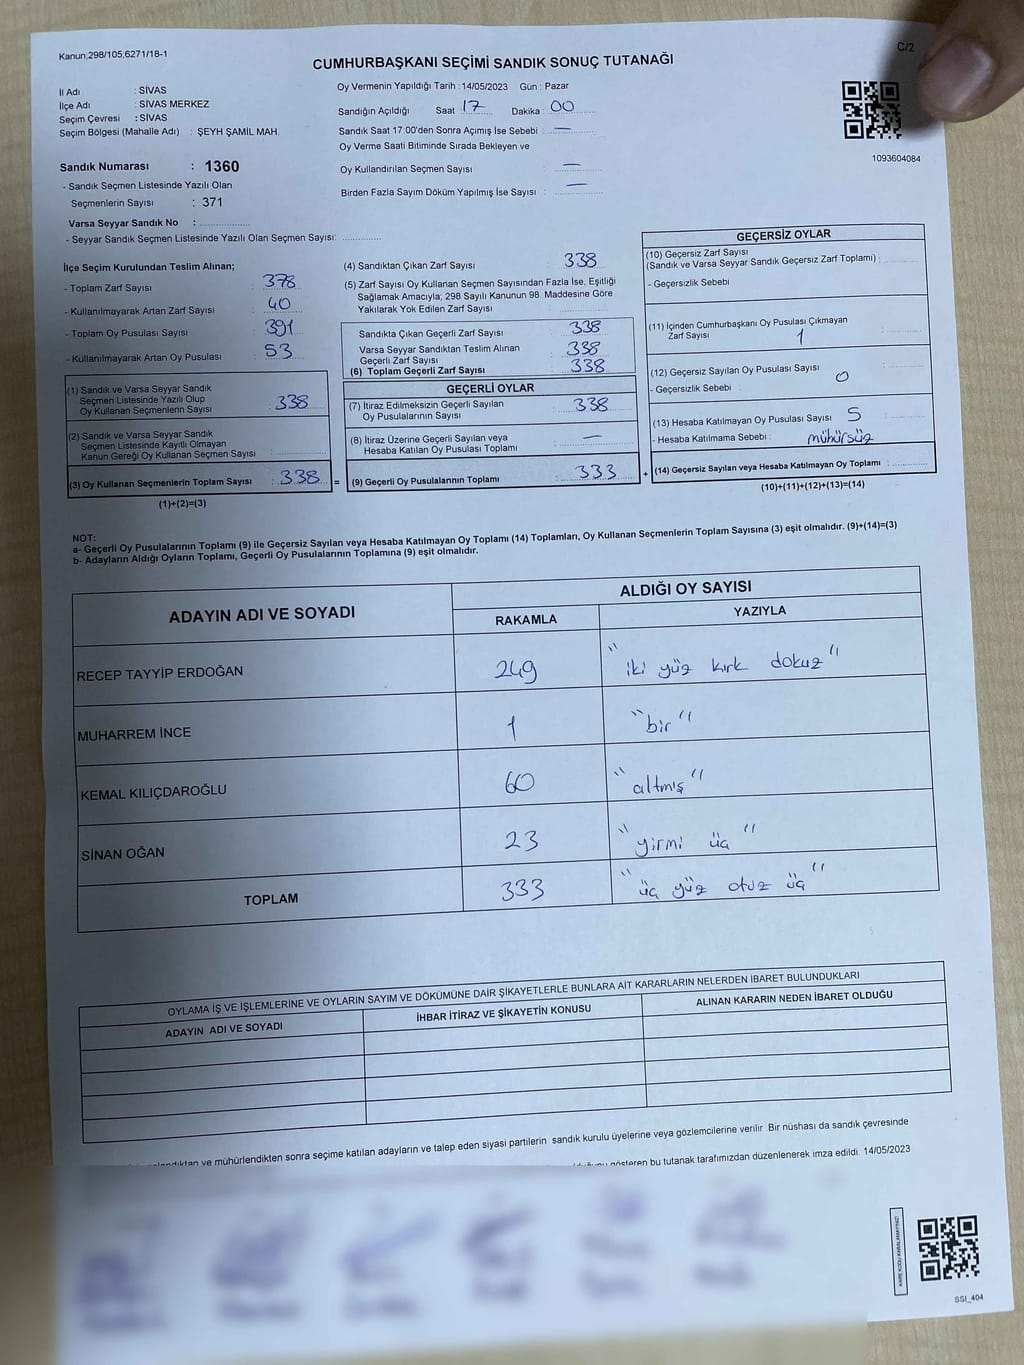 Kanun;298/105;6271/18-1
C/2
CUMHURBAŞKANI SEÇİMİ SANDIK SONUÇ TUTANAĞI
İl Adı : SİVAS
İlçe Adı : SİVAS MERKEZ
Seçim Çevresi : SİVAS
Seçim Bölgesi (Mahalle Adı) : ŞEYH ŞAMİL MAH.
Oy Vermenin Yapıldığı Tarih : 14/05/2023 Gün : Pazar
Sandığın Açıldığı Saat : 17 Dakika : 00
Sandık Saat 17:00'den Sonra Açımış İse Sebebi : —
Oy Verme Saati Bitiminde Sırada Bekleyen ve
Oy Kullandırılan Seçmen Sayısı : —
Birden Fazla Sayım Döküm Yapılmış İse Sayısı : —
1093604084
Sandık Numarası : 1360
- Sandık Seçmen Listesinde Yazılı Olan
Seçmenlerin Sayısı : 371
Varsa Seyyar Sandık No :
- Seyyar Sandık Seçmen Listesinde Yazılı Olan Seçmen Sayısı:
İlçe Seçim Kurulundan Teslim Alınan;
- Toplam Zarf Sayısı : 378
- Kullanılmayarak Artan Zarf Sayısı : 40
- Toplam Oy Pusulası Sayısı : 391
- Kullanılmayarak Artan Oy Pusulası : 53
(1) Sandık ve Varsa Seyyar Sandık
Seçmen Listesinde Yazılı Olup
Oy Kullanan Seçmenlerin Sayısı : 338
(2) Sandık ve Varsa Seyyar Sandık
Seçmen Listesinde Kayıtlı Olmayan
Kanun Gereği Oy Kullanan Seçmen Sayısı :
(3) Oy Kullanan Seçmenlerin Toplam Sayısı : 338 =
(1)+(2)=(3)
(4) Sandıktan Çıkan Zarf Sayısı : 338
(5) Zarf Sayısı Oy Kullanan Seçmen Sayısından Fazla İse, Eşitliği
Sağlamak Amacıyla; 298 Sayılı Kanunun 98. Maddesine Göre
Yakılarak Yok Edilen Zarf Sayısı :
Sandıkta Çıkan Geçerli Zarf Sayısı : 338
Varsa Seyyar Sandıktan Teslim Alınan
Geçerli Zarf Sayısı : 338
(6) Toplam Geçerli Zarf Sayısı : 338
GEÇERLİ OYLAR
(7) İtiraz Edilmeksizin Geçerli Sayılan
Oy Pusulalarının Sayısı : 338
(8) İtiraz Üzerine Geçerli Sayılan veya
Hesaba Katılan Oy Pusulası Toplamı : —
(9) Geçerli Oy Pusulalarının Toplamı : 333 +
GEÇERSİZ OYLAR
(10) Geçersiz Zarf Sayısı
(Sandık ve Varsa Seyyar Sandık Geçersiz Zarf Toplamı) :
- Geçersizlik Sebebi
(11) İçinden Cumhurbaşkanı Oy Pusulası Çıkmayan
Zarf Sayısı : 1
(12) Geçersiz Sayılan Oy Pusulası Sayısı : 0
- Geçersizlik Sebebi :
(13) Hesaba Katılmayan Oy Pusulası Sayısı : 5
- Hesaba Katılmama Sebebi : mühürsüz
(14) Geçersiz Sayılan veya Hesaba Katılmayan Oy Toplamı :
(10)+(11)+(12)+(13)=(14)
NOT:
a- Geçerli Oy Pusulalarının Toplamı (9) ile Geçersiz Sayılan veya Hesaba Katılmayan Oy Toplamı (14) Toplamları, Oy Kullanan Seçmenlerin Toplam Sayısına (3) eşit olmalıdır. (9)+(14)=(3)
b- Adayların Aldığı Oyların Toplamı, Geçerli Oy Pusulalarının Toplamına (9) eşit olmalıdır.
ADAYIN ADI VE SOYADI
ALDIĞI OY SAYISI
RAKAMLA YAZIYLA
RECEP TAYYİP ERDOĞAN 249 "iki yüz kırk dokuz"
MUHARREM İNCE 1 "bir"
KEMAL KILIÇDAROĞLU 60 "altmış"
SİNAN OĞAN 23 "yirmi üç"
TOPLAM 333 "üç yüz otuz üç"
OYLAMA İŞ VE İŞLEMLERİNE VE OYLARIN SAYIM VE DÖKÜMÜNE DAİR ŞİKAYETLERLE BUNLARA AİT KARARLARIN NELERDEN İBARET BULUNDUKLARI
ADAYIN ADI VE SOYADI İHBAR İTİRAZ VE ŞİKAYETİN KONUSU ALINAN KARARIN NEDEN İBARET OLDUĞU
ve mühürlendikten sonra seçime katılan adayların ve talep eden siyasi partilerin sandık kurulu üyelerine veya gözlemcilerine verilir. Bir nüshası da sandık çevresinde
gösteren bu tutanak tarafımızdan düzenlenerek imza edildi. 14/05/2023
KARE KODU KARALAMAYINIZ!
SSI_404